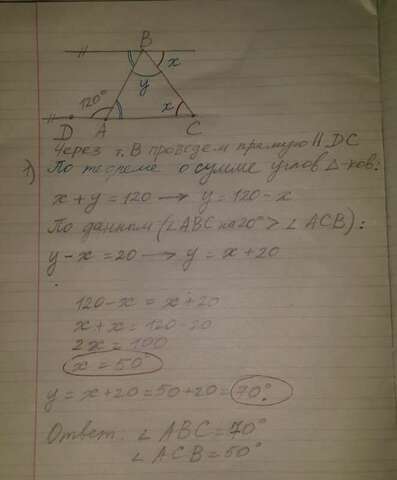 B
x
y
120°
x
D
A
C
Через т. B проведем прямую || DC
1) По теореме о сумме углов Δ-ков:
x + y = 120 → y = 120 - x
По данным (∠ABC на 20° > ∠ACB):
y - x = 20 → y = x + 20
120 - x = x + 20
x + x = 120 - 20
2x = 100
x = 50°
y = x + 20 = 50 + 20 = 70°
Ответ: ∠ABC = 70°
∠ACB = 50°